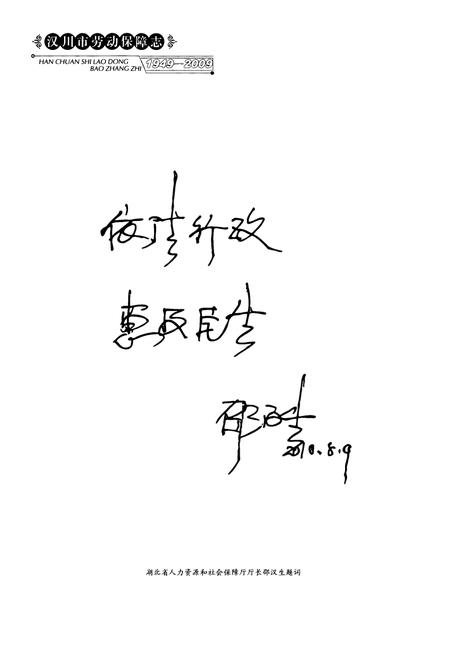 汉川市劳动保障志
HAN CHUAN SHI LAO DONG
BAO ZHANG ZHI
1949—2009
依法行政
惠及民生
邵汉生
2010.8.9
湖北省人力资源和社会保障厅厅长邵汉生题词